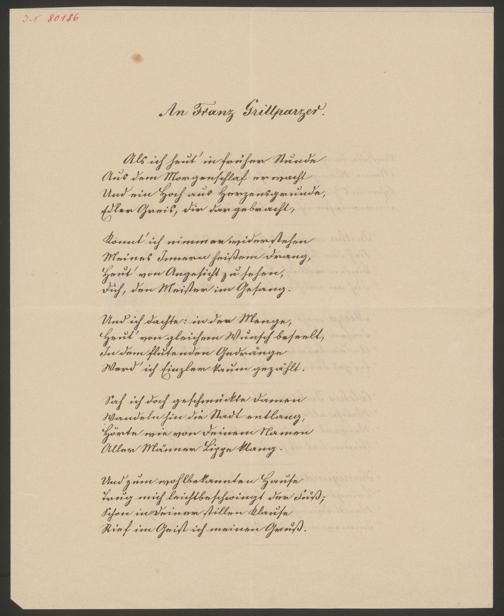 J.N. 80186
An Franz Grillparzer.
Als ich heut' in früher Stunde
Aus dem Morgenschlaf erwacht
Und ein Hoch aus Herzensgrunde,
Edler Greis, dir dargebracht,
Konnt' ich nimmer widerstehen
Meines Innern heißem Drang,
Heut' von Angesicht zu sehen,
Dich, den Meister im Gesang.
Und ich dachte: in der Menge,
Heut' von gleichem Wunsch beseelt,
In dem flutenden Gedränge
Werd' ich Einzler kaum gezählt.
Sah ich doch geschmückte Damen
Wandeln hin die Stadt entlang,
Hörte wie von deinem Namen
Aller Männer Lippe klang.
Und zum wohlbekannten Hause
Trug mich leichtbeschwingt der Fuß;
Schon in Deiner stillen Klause
Rief im Geist ich meinen Gruß.